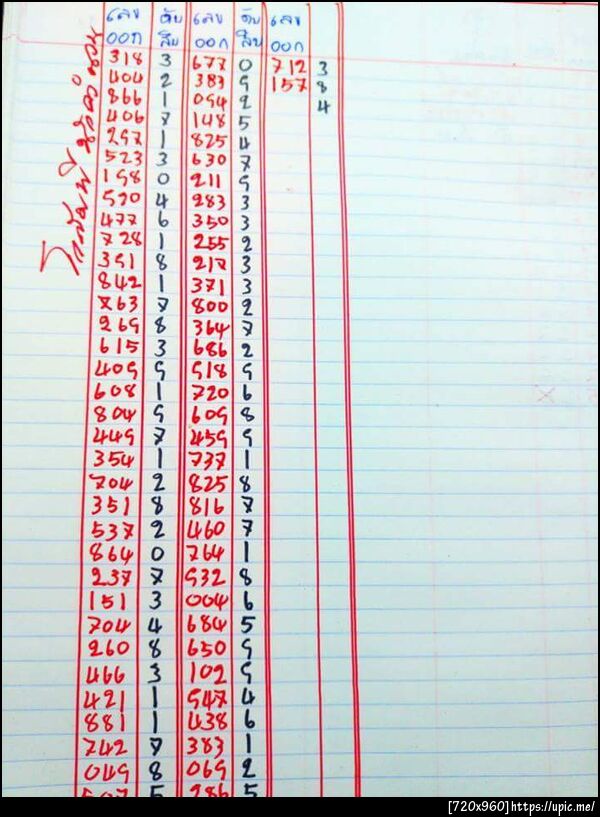 เลข ดับ เลข ดับ เลข
ออก สิบ ออก สิบ ออก
318 3 677 0 712 3
404 2 383 9 157 8
866 1 094 2 4
406 7 148 5
297 1 825 4
523 3 630 7
198 0 211 9
590 4 283 3
477 6 350 3
728 1 255 2
391 8 217 3
842 1 371 3
763 7 800 2
269 8 364 7
615 3 686 2
409 9 918 9
608 1 720 6
804 9 609 8
449 7 459 9
354 1 737 1
704 2 825 8
351 8 816 7
537 2 460 7
864 0 764 1
237 7 932 8
151 3 004 6
704 4 684 5
260 8 650 9
466 3 102 9
421 1 947 4
881 1 438 6
742 7 383 1
049 8 069 2
5 5
[720x960]https://upic.me/